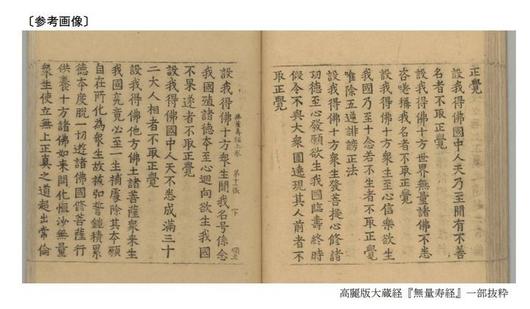 〔参考画像〕
正覺
設我得佛國中人天乃至聞有不善
名者不取正覺
設我得佛十方世界無量諸佛不悉
咨嗟稱我名者不取正覺
設我得佛十方衆生至心信樂欲生
我國乃至十念若不生者不取正覺
唯除五逆誹謗正法
設我得佛十方衆生發菩提心修諸
功德至心發願欲生我國臨壽終時
假令不與大衆圍遶現其人前者不
取正覺
設我得佛十方衆生聞我名号係念
我國殖諸德本至心迴向欲生我國
不果遂者不取正覺
設我得佛國中人天不悉成滿三十
二大人相者不取正覺
設我得佛他方佛土諸菩薩衆來生
我國究竟必至一生補處除其本願
自在所化為衆生故被弘誓鎧積累
德本度脫一切遊諸佛國修菩薩行
供養十方諸佛如來開化恒沙無量
衆生使立無上正真之道超出常倫
高麗版大蔵経『無量寿経』一部抜粋